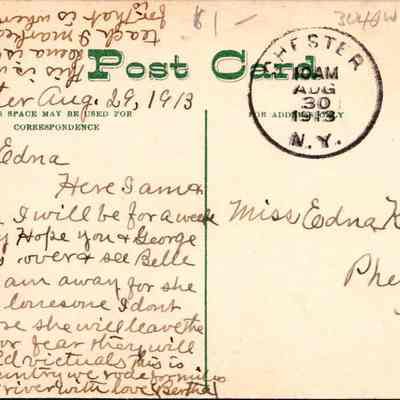 for that is where
teach I marked
Edna is
This is
$1-
Post Card
CHESTER
10AM
AUG
30
1913
N.Y.
ter Aug. 29, 1913
SPACE MAY BE USED FOR
CORRESPONDENCE
FOR ADDRESS ONLY
Edna
Here I am &
I will be for a week
Hope you & George
over & see Belle
am away for she
lonesome I dont
se she will leave the
or fear they will
victuals this is
untry we rode
river with love Bertha
Miss Edna K
Phe